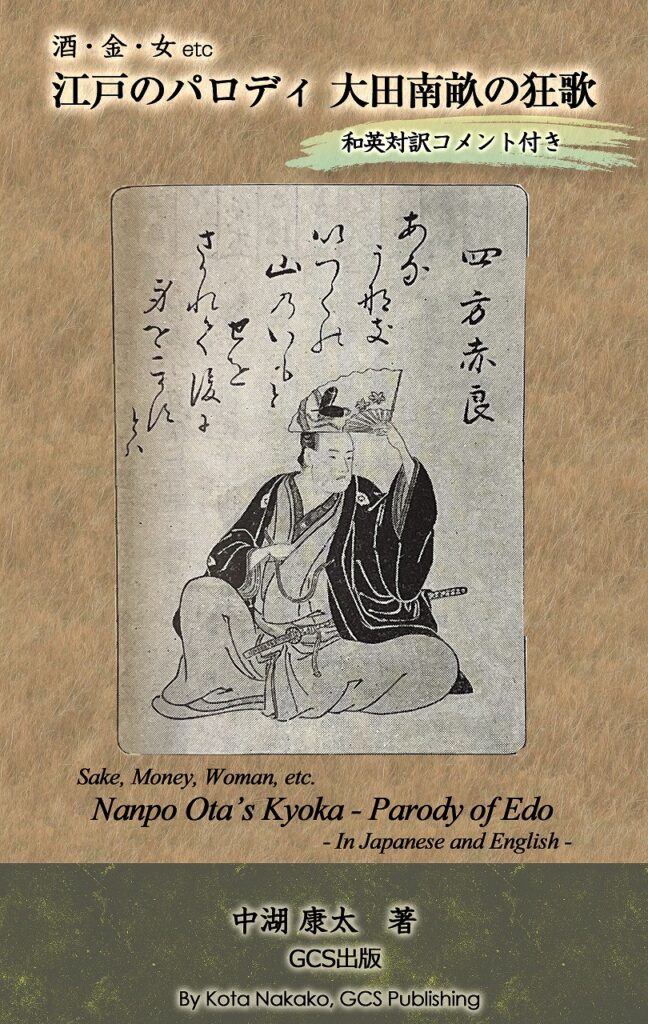 酒・金・女 etc
江戸のパロディ 大田南畝の狂歌
和英対訳コメント付き
四方赤良
あな
うなき
いつくの
山のいもと
せを
さかれて後に
身をこかす
とは
Sake, Money, Woman, etc.
Nanpo Ota's Kyoka - Parody of Edo
- In Japanese and English -
中湖 康太 著
GCS出版
By Kota Nakako, GCS Publishing